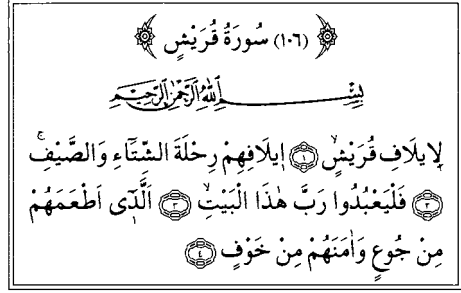 (١٠٦) سُورَةُ قُرَيْشٍ
بِسْمِ اللهِ الرَّحْمٰنِ الرَّحِيمِ
لِاِيلَافِ قُرَيْشٍۙ ﴿١﴾ اِيلَافِهِمْ رِحْلَةَ الشِّتَٓاءِ وَالصَّيْفِۚ
﴿٢﴾ فَلْيَعْبُدُوا رَبَّ هٰذَا الْبَيْتِۙ ﴿٣﴾ اَلَّذ۪ٓى اَطْعَمَهُمْ
مِنْ جُوعٍ وَاٰمَنَهُمْ مِنْ خَوْفٍ ﴿٤﴾